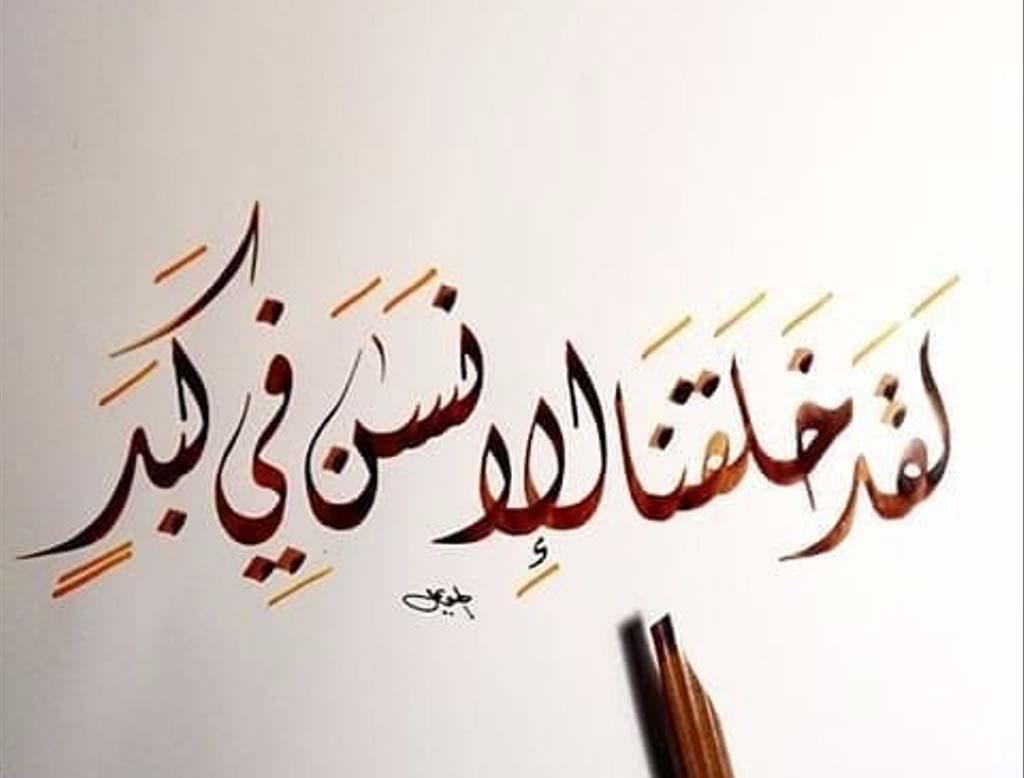 لَقَدَ خَلَقنَا الإِنسَنَ فِي كَبَدٍ